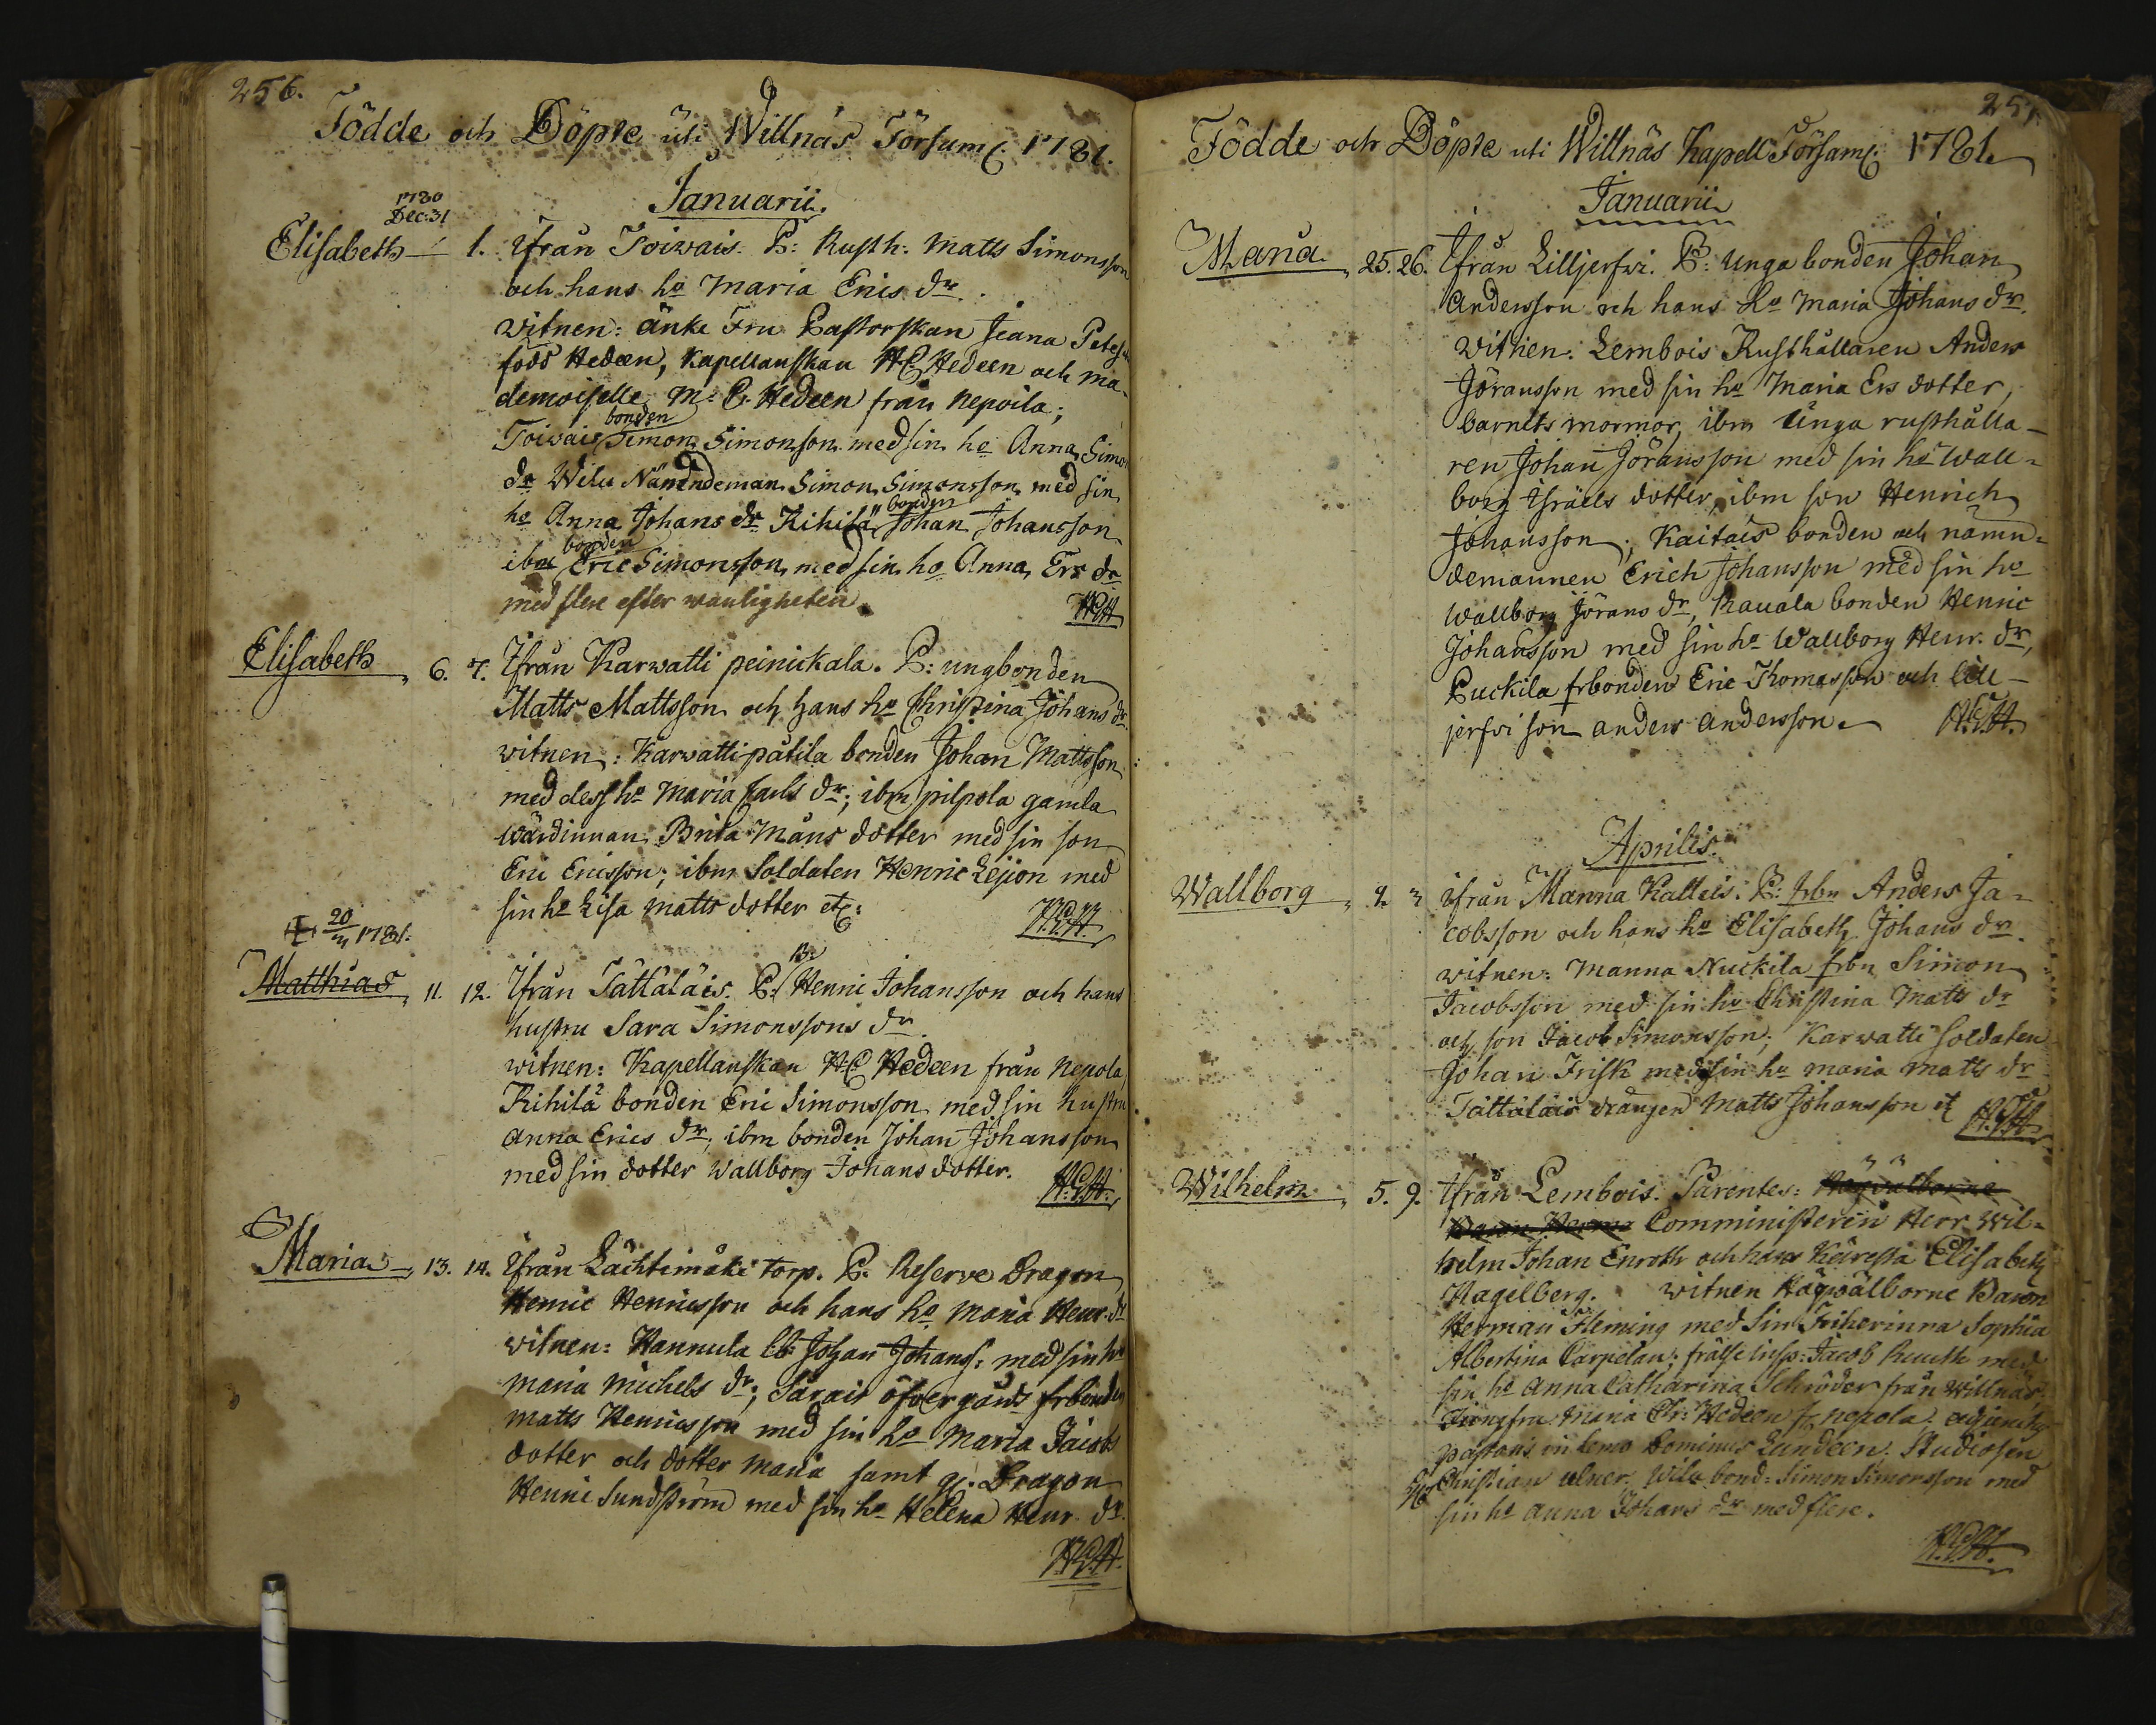 256.
Födde och Döpte uti Willnäs Församl. 1781.
Januarii.
1780
Dec: 31
Elisabeth 1. Ifrån Toiwais. P: Rusth: Matts Simonsson
och hans ho Maria Erics dr.
witnen: änke Fru Pastorskan Jeana
född Hedeen, Kapellanskan HC Hedeen och ma-
demoiselle M: C. Hedeen från Nepoila;
bonden
Toiwais Simon Simonson med sin ho Anna Simo
dr Wilu Nämndeman Simon Simonsson med sin
bonden
ho Anna Johans dr Kihila Johan Johansson
bonden
ibm Eric Simonsson med sin ho Anna Ers dr
med flere efter wanligheten. HGH
Elisabeth 6. 7. Ifrån Karwatti peinickala. P: ungbonden
Matts Mattsson och hans ho Christina Johans dr
witnen: Karwatti pätila bonden Johan Mattsson
med dess ho Maria Carls dr; ibm pilpola gamla
Wärdinnan Brita Måns dotter med sin son
Eric Ericsson; ibm Soldaten Henric Lejion med
sin ho Lisa Matts dotter etc: HGH
20/3 1781.
Matthias 11. 12. Ifrån Tättäläis. P: B: Henric Johansson och hans
hustru Sara Simonssons dr
witnen: Kapellanskan HC Hedeen från Nepola,
Kihilä bonden Eric Simonsson med sin hustru
Anna Erics dr; ibm bonden Johan Johansson
med sin dotter Wallborg Johans dotter. HGH.
Maria 13. 14. Ifrån Lächtimäki torp. P. Reserve Dragon
Henric Henricsson och hans ho Maria Henr. dr
witnen: Hannula Johan Johans: med sin ho
Maria Michels dr; Särais öfvergårds frbonden
Matts Henricsson med sin ho Maria Jacobs
dotter och dotter Maria samt gl. Dragon
Henric Sundström med sin ho Helena Henr. dr.
HGH.
257.
Födde och Döpte uti Willnäs Kapell Församl: 1781.
Januarii
Maria 25. 26. Ifrån Lilljerfwi. P: Unga bonden Johan
Andersson och hans ho Maria Johans dr.
Witnen: Lembois Rusthållaren Anders
Jöransson med sin ho Maria Ers dotter,
barnets mormor, ibm Unga rusthålla-
ren Johan Jöransson med sin ho Wall-
borg Israels dotter, ibm son Henrich
Johansson; Kaitais bonden och nämn-
demannen Erich Johansson med sin ho
Wallborg Jörans dr, Rauala bonden Henric
Johansson med sin ho Wallborg Henr. dr,
Puckila frbonden Eric Thomasson och Lill-
jerfwi son Anders Andersson. HGH.
Aprilis.
Wallborg 2. 3 ifrån Manna Kalteis: P: frbn Anders Ja-
cobsson och hans ho Elisabeth Johans dr.
witnen: Manna Nuckila frbn Simon
Jacobsson med sin ho Christina Matts dr
och son Jacob Simonsson; Karwatti Soldaten
Johan Frisk med sin ho Maria Matts dr
Tättäläis drängen Matts Johansson etc HGH
Wilhelm 5. 9. Ifrån Lembois. Parentes: Högvälborne
Baron Herman Comministeren Herr Wil-
helm Johan Enroth och hans Käresta Elisabeth
Hagelberg. witnen Högwälborne Baron
Herman Fleming med Sin Friherinna Sophia
Albertina Carpelan; frälse insp: Jacob Ruuth med
sin ho Anna Catharina Schröder från Willnäs
Jungfru Maria Chr: Hedeen fr. Nepola. adjunctus
pastoris in Lemo Dominus Lundeen. Studiosen
Christian Wilu bond: Simon Simonsson med
sin ho Anna Johans dr med flere.
HGH.